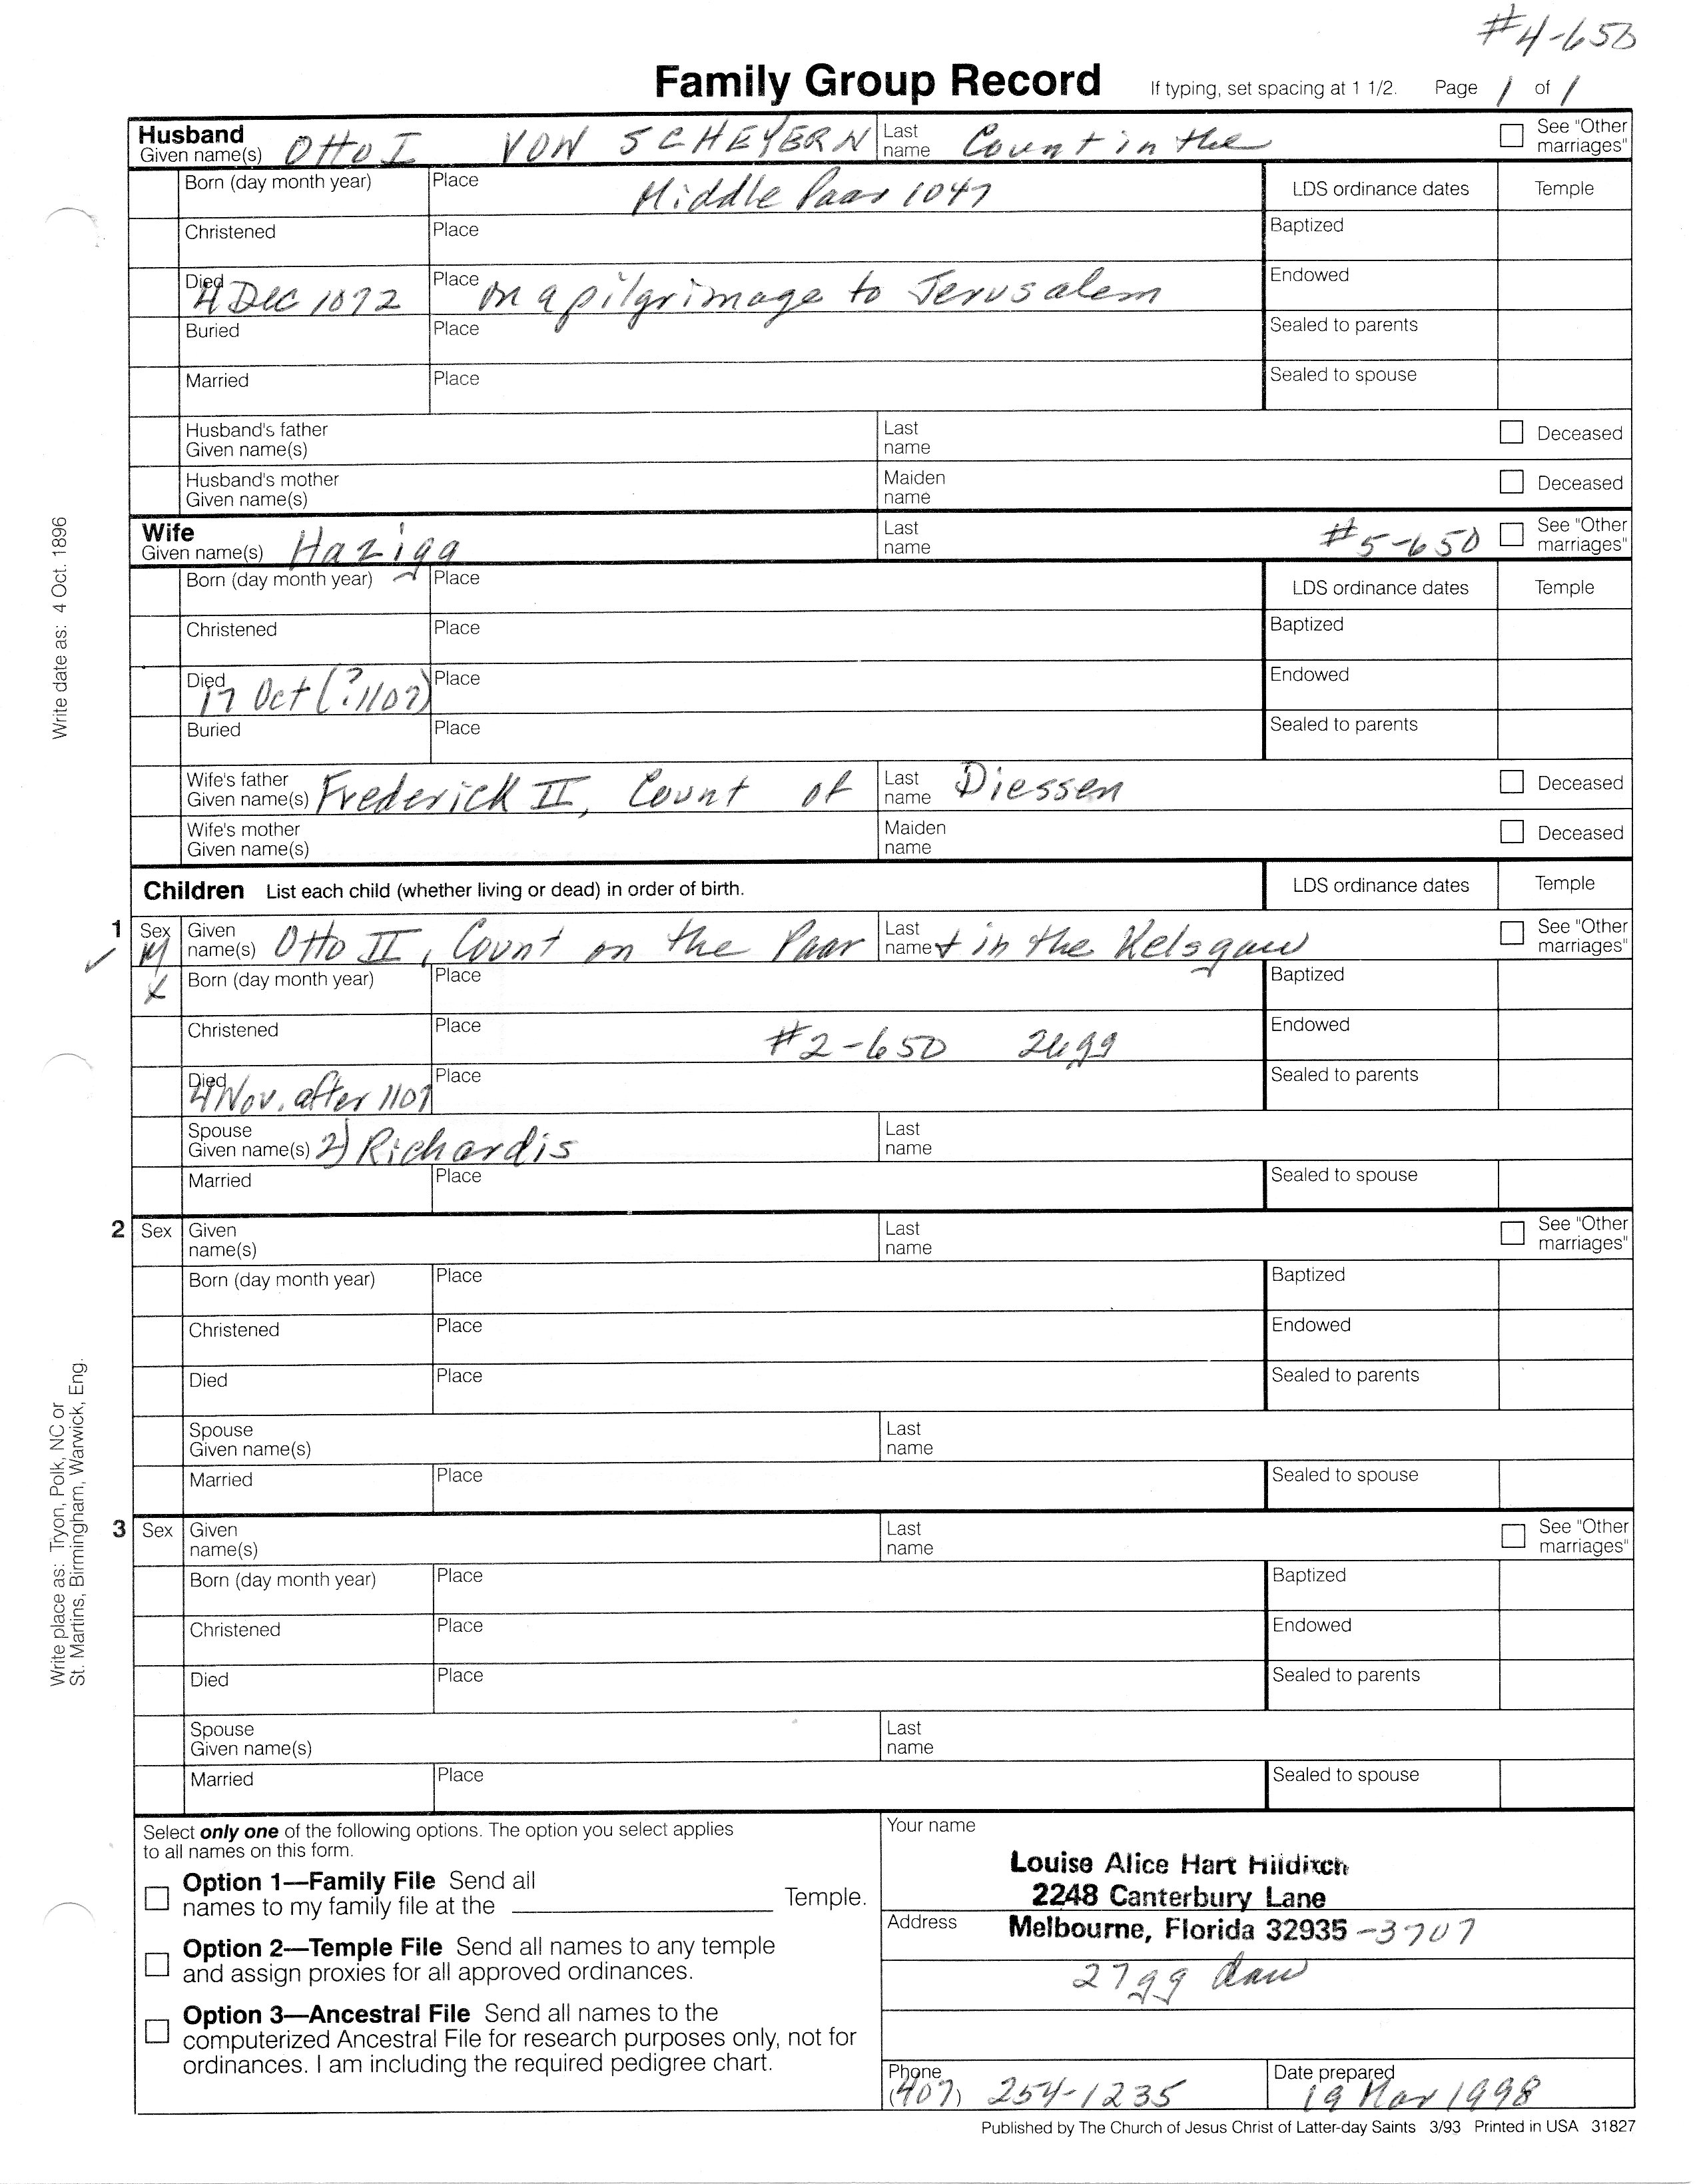 #4-650
Family Group Record If typing, set spacing at 1 1/2. Page 1 of 1
Husband
Given name(s) Otto I VON SCHEYERN Last name Count in the See "Other marriages"
Born (day month year) Place Middle Paar 1047 LDS ordinance dates Temple
Christened Place Baptized
Died 4 Dec 1072 Place on a pilgrimage to Jerusalem Endowed
Buried Place Sealed to parents
Married Place Sealed to spouse
Husband's father Given name(s) Last name Deceased
Husband's mother Given name(s) Maiden name Deceased
Wife
Given name(s) Hazigg Last name #5-650 See "Other marriages"
Born (day month year) Place LDS ordinance dates Temple
Christened Place Baptized
Died 17 Oct (?1107) Place Endowed
Buried Place Sealed to parents
Wife's father Given name(s) Frederick II, Count of Last name Diessen Deceased
Wife's mother Given name(s) Maiden name Deceased
Children List each child (whether living or dead) in order of birth. LDS ordinance dates Temple
1 Sex M Given name(s) Otto II, Count on the Paar Last name + in the Kelsgau See "Other marriages"
X Born (day month year) Place Baptized
Christened Place #2-650 26gg Endowed
Died 4 Nov. after 1107 Place Sealed to parents
Spouse Given name(s) 2) Richardis Last name
Married Place Sealed to spouse
2 Sex Given name(s) Last name See "Other marriages"
Born (day month year) Place Baptized
Christened Place Endowed
Died Place Sealed to parents
Spouse Given name(s) Last name
Married Place Sealed to spouse
3 Sex Given name(s) Last name See "Other marriages"
Born (day month year) Place Baptized
Christened Place Endowed
Died Place Sealed to parents
Spouse Given name(s) Last name
Married Place Sealed to spouse
Select only one of the following options. The option you select applies
to all names on this form.
Option 1—Family File Send all
names to my family file at the Temple.
Option 2—Temple File Send all names to any temple
and assign proxies for all approved ordinances.
Option 3—Ancestral File Send all names to the
computerized Ancestral File for research purposes only, not for
ordinances. I am including the required pedigree chart.
Your name
Louise Alice Hart Hilditch
2248 Canterbury Lane
Address Melbourne, Florida 32935 -3707
27gg dau
Phone (407) 254-1235 Date prepared 19 Mar 1998
Published by The Church of Jesus Christ of Latter-day Saints 3/93 Printed in USA 31827
Write date as: 4 Oct. 1896
Write place as: Tryon, Polk, NC or
St. Martins, Birmingham, Warwick, Eng.